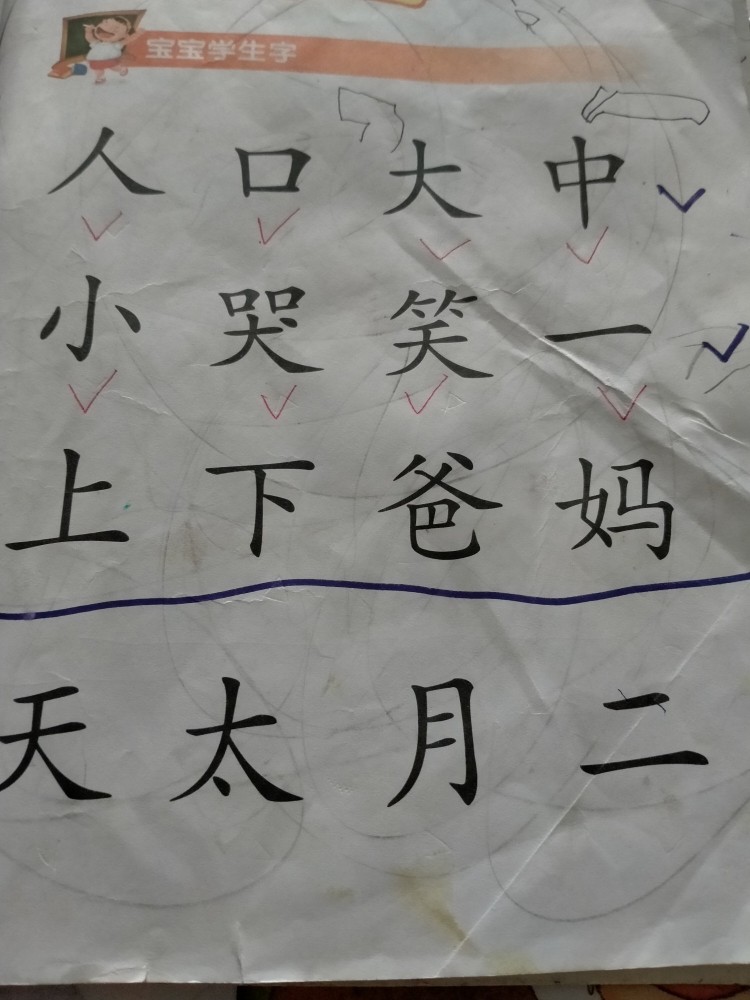 宝宝学生字
人 口 大 中
小 哭 笑 一
上 下 爸 妈
天 太 月 二